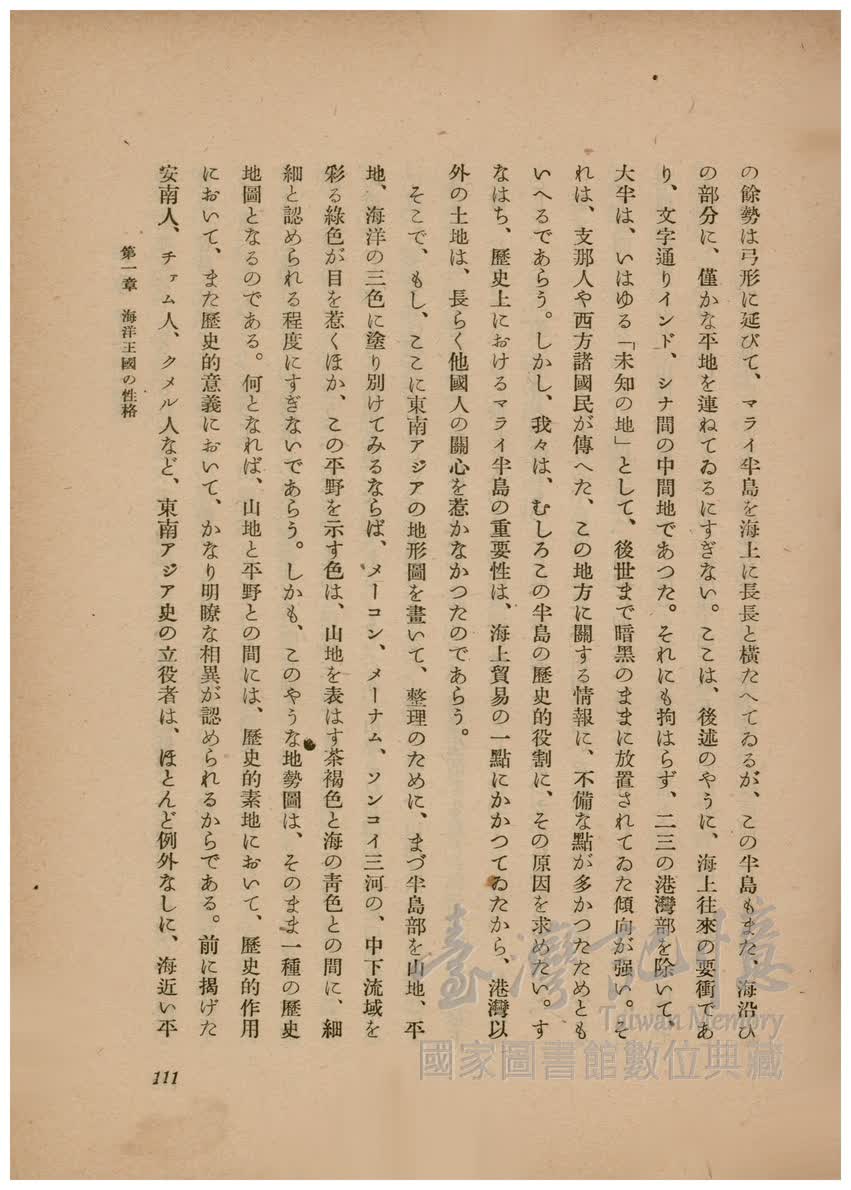 の餘勢は弓形に延びて、マライ半島を海上に長長と橫たへてゐるが、この半島もまた、海沿ひ
の部分に、僅かな平地を連ねてゐるにすぎない。ここは、後述のやうに、海上往來の要衝であ
り、文字通りインド、シナ間の中間地であつた。それにも拘はらず、二三の港灣部を除いて、
大半は、いはゆる「未知の地」として、後世まで暗黑のままに放置されてゐた傾向が强い。そ
れは、支那人や西方諸國民が傳へた、この地方に關する情報に、不備な點が多かつたためとも
いへるであらう。しかし、我々は、むしろこの半島の歷史的役割に、その原因を求めたい。す
なはち、歷史上におけるマライ半島の重要性は、海上貿易の一點にかかつてゐたから、港灣以
外の土地は、長らく他國人の關心を惹かなかつたのであらう。
そこで、もし、ここに東南アジアの地形圖を畫いて、整理のために、まづ半島部を山地、平
地、海洋の三色に塗り別けてみるならば、メーコン、メーナム、ソンコイ三河の、中下流域を
彩る綠色が目を惹くほか、この平野を示す色は、山地を表はす茶褐色と海の靑色との間に、細
細と認められる程度にすぎないであらう。しかも、このやうな地勢圖は、そのまま一種の歷史
地圖となるのである。何となれば、山地と平野との間には、歷史的素地において、歷史的作用
において、また歷史的意義において、かなり明瞭な相異が認められるからである。前に揭げた
安南人、チァム人、クメル人など、東南アジア史の立役者は、ほとんど例外なしに、海近い平
第一章 海洋王國の性格
111
臺灣記憶
Taiwan Memory
國家圖書館數位典藏